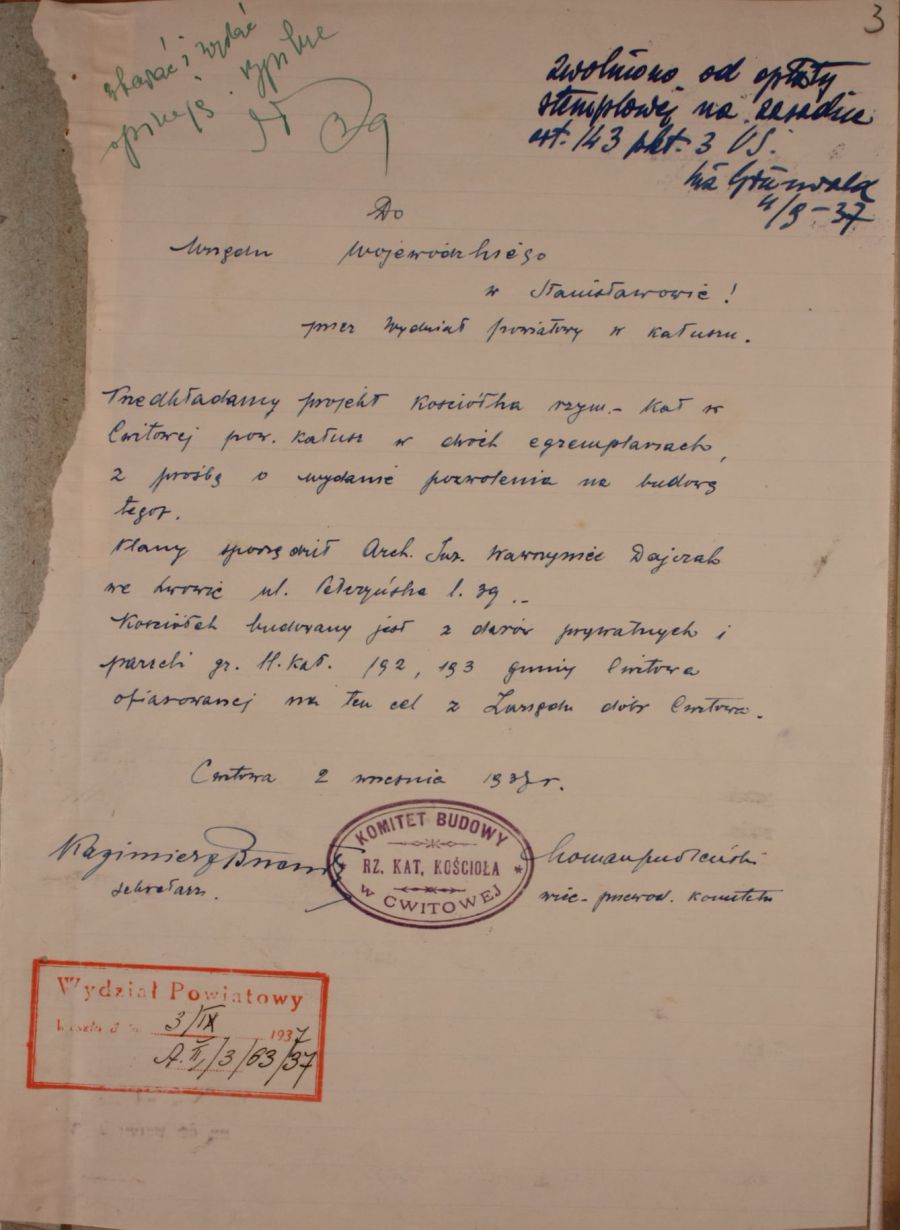 3
zbadać i wydać
opinję szybko
zwolniono od opłaty
stemplowej na zasadzie
art. 143 pkt. 3 US.
4/9-37
Do
Urzędu Wojewódzkiego
w Stanisławowie!
przez Wydział powiatowy w Kałuszu.
Przedkładamy projekt Kościółka rzym.- Kat w
Cwitowej pow. Kałusz w dwóch egzemplarzach,
z prośbą o wydanie pozwolenia na budowę
tegoż.
Plany sporządził Arch. Inż. Wawrzyniec Dajczak
we Lwowie ul. Pełczyńska l. 39.-
Kościółek budowany jest z darów prywatnych i
parceli gr. l. kat. 192, 193 gminy Cwitowa
ofiarowanej na ten cel z Zarządu dóbr Cwitowa.
Cwitowa 2 września 1937 r.
Kazimierz
sekretarz.
KOMITET BUDOWY
RZ. KAT. KOŚCIOŁA
w CWITOWEJ
Roman
wice-przewod. Komitetu
Wydział Powiatowy
3/IX 1937
A.II/3/63/37